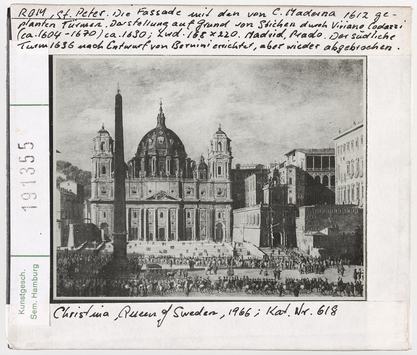 ROM, St. Peter. Die Fassade mit den von C. Maderna 1612 ge-
planten Türmen. Darstellung auf Grund von Stichen durch Viviano Codazzi
(ca. 1604-1670) ca. 1630; Lwd. 168 x 220. Madrid, Prado. Der südliche
Turm 1636 nach Entwurf von Bernini errichtet, aber wieder abgebrochen.
191355
Kunstgesch.
Sem. Hamburg
Christina, Queen of Sweden, 1966; Kat. Nr. 618